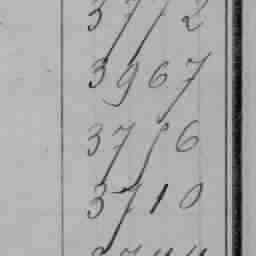 3772
3967
3716
3710